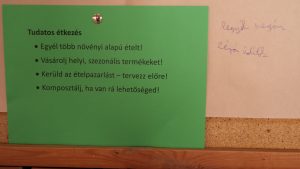 Tudatos étkezés
• Egyél több növényi alapú ételt!
• Vásárolj helyi, szezonális termékeket!
• Kerüld az ételpazarlást – tervezz előre!
• Komposztálj, ha van rá lehetőséged!